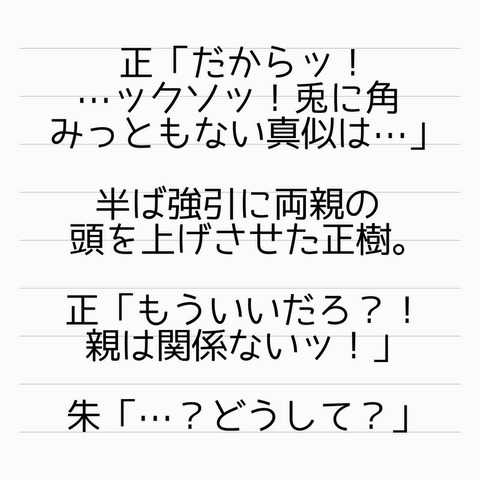 正「だからッ！
…ックソッ！兎に角
みっともない真似は…」
半ば強引に両親の
頭を上げさせた正樹。
正「もういいだろ？！
親は関係ないッ！」
朱「…？どうして？」